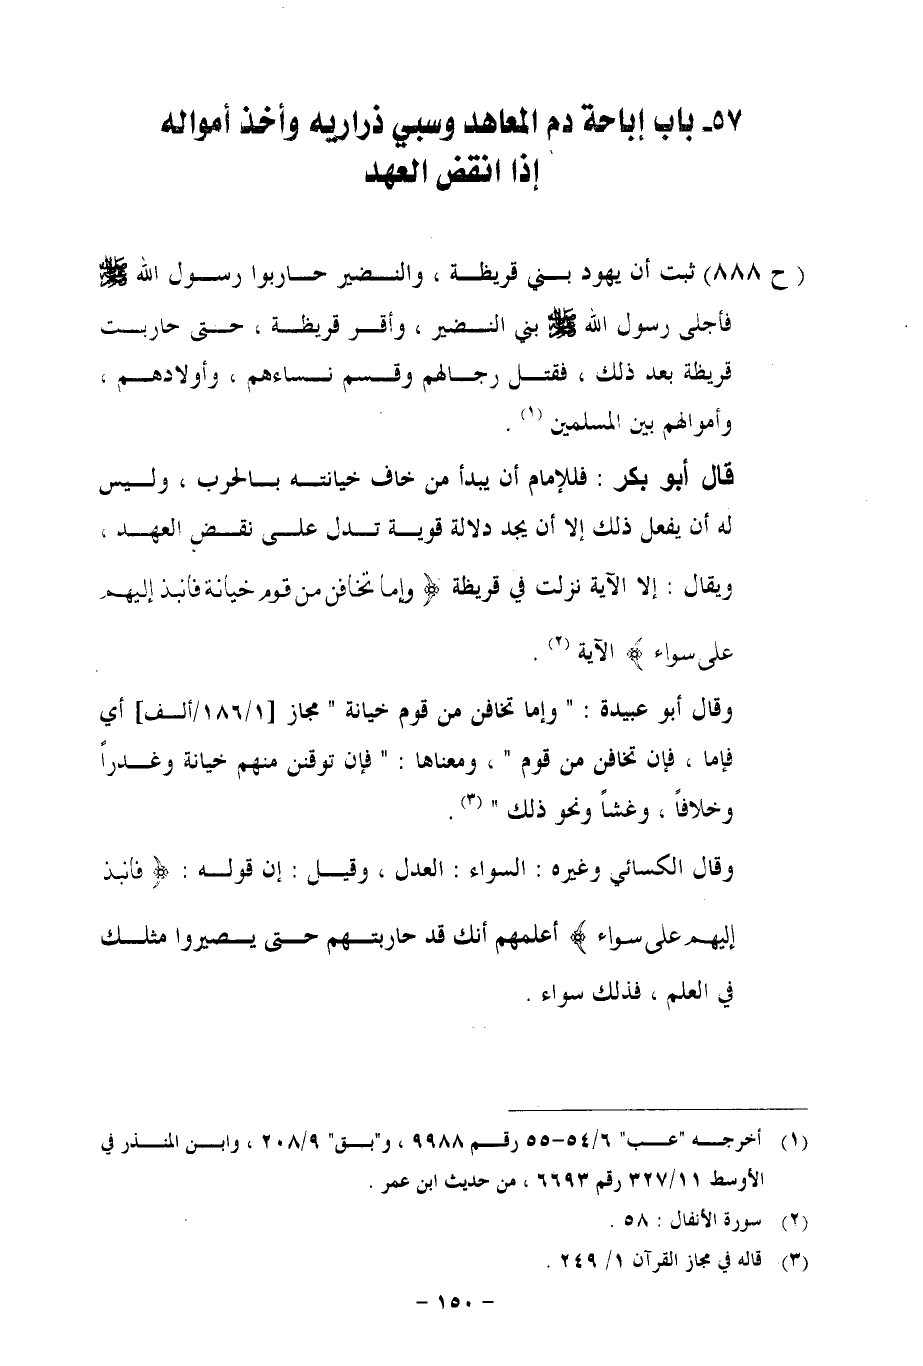 ٥٧ـ باب إباحة دم المعاهد وسبي ذراريه وأخذ أمواله
إذا انقض العهد
( ح ٨٨٨) ثبت أن يهود بـــني قريظـــة ، والنـــضير حـــاربوا رســـول الله ﷺ
فأجلى رسول الله ﷺ بني النـــضير ، وأقـــر قريظـــة ، حـــتى حاربـــت
قريظة بعد ذلك ، فقتـــل رجـــالهم وقـــسم نـــساءهم ، وأولادهـــم ،
وأموالهم بين المسلمين (١) .
قال أبو بكر : فللإمام أن يبدأ من خاف خيانتـــه بـــالحرب ، ولـــيس
له أن يفعل ذلك إلا أن يجد دلالة قويـــة تـــدل علـــى نقـــض العهـــد ،
ويقال : إلا الآية نزلت في قريظة ﴿ وإما تخافن من قوم خيانة فأنبذ إليهم
على سواء ﴾ الآية (٢) .
وقال أبو عبيدة : " وإما تخافن من قوم خيانة " مجاز [١٨٦/١/ألـــف] أي
فإما ، فإن تخافن من قوم " ، ومعناها : " فإن توقنن منهم خيانة وغـــدراً
وخلافاً ، وغشاً ونحو ذلك " (٣) .
وقال الكسائي وغيره : السواء : العدل ، وقيـــل : إن قولـــه : ﴿ فأنبذ
إليهم على سواء ﴾ أعلمهم أنك قد حاربتـــهم حـــتى يـــصيروا مثلـــك
في العلم ، فذلك سواء .
(١) أخرجـــه "عـــب" ٥٤/٦-٥٥ رقـــم ٩٩٨٨ ، و"بـــق" ٢٠٨/٩ ، وابـــن المنـــذر في
الأوسط ٣٢٧/١١ رقم ٦٦٩٣ ، من حديث ابن عمر .
(٢) سورة الأنفال : ٥٨ .
(٣) قاله في مجاز القرآن ١/ ٢٤٩ .
- ١٥٠ -